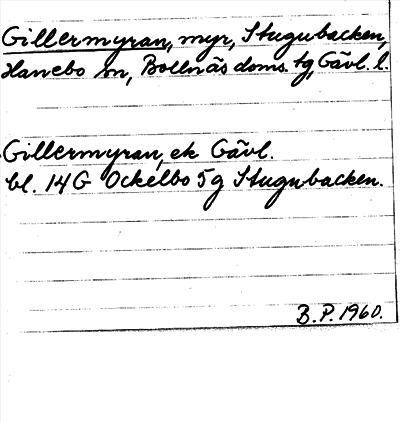 Gillermyran, myr, Stugubacken,
Hanebo sn, Bollnäs doms. tg, Gävl. l.
Gillermyran, ek Gävl.
bl. 14G Ockelbo 5g Stugubacken.
B.P. 1960.